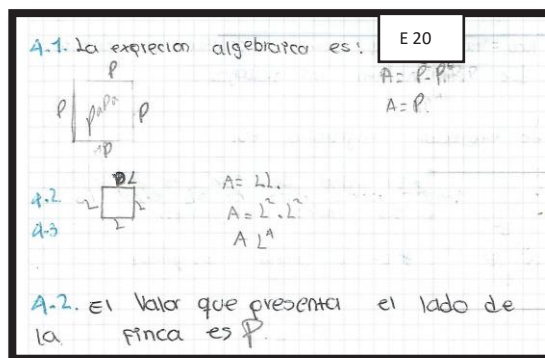 4.1. La exprecion algebraica es:
E 20
P
P
P
P
A = P.
4.2
L
L
L
L
A = LL.
4.3
A = L². L²
A L⁴
4.2. El Valor que presenta el lado de
la finca es P.